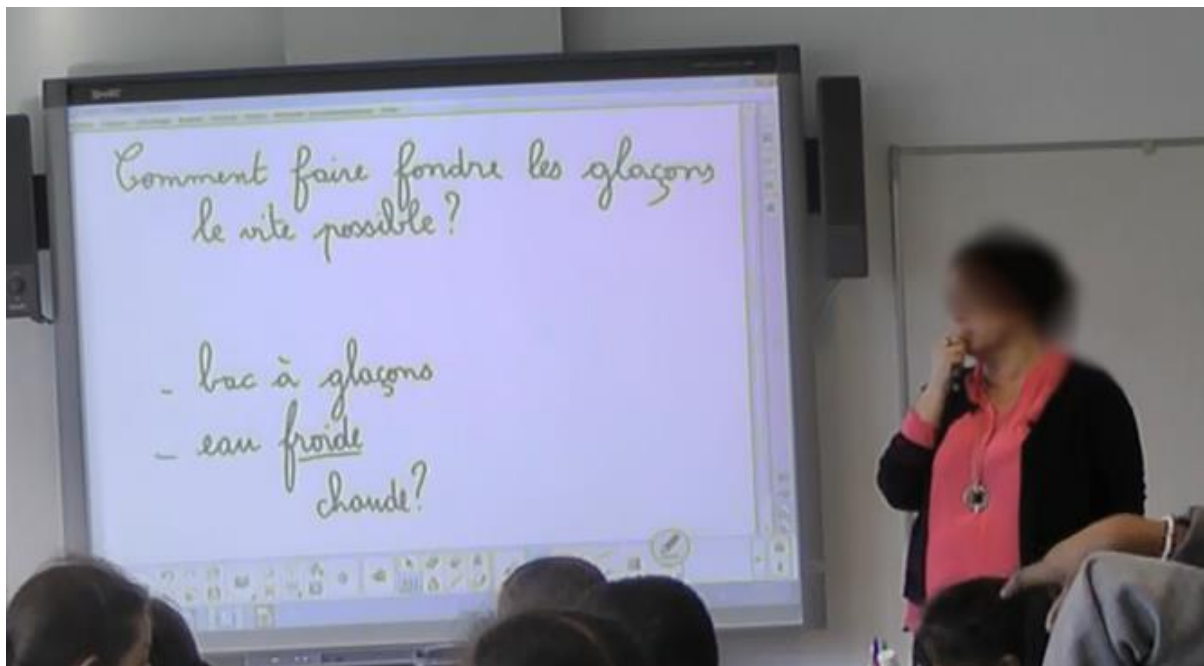 Comment faire fondre les glaçons
le vite possible ?
- bac à glaçons
- eau froide
chaude ?